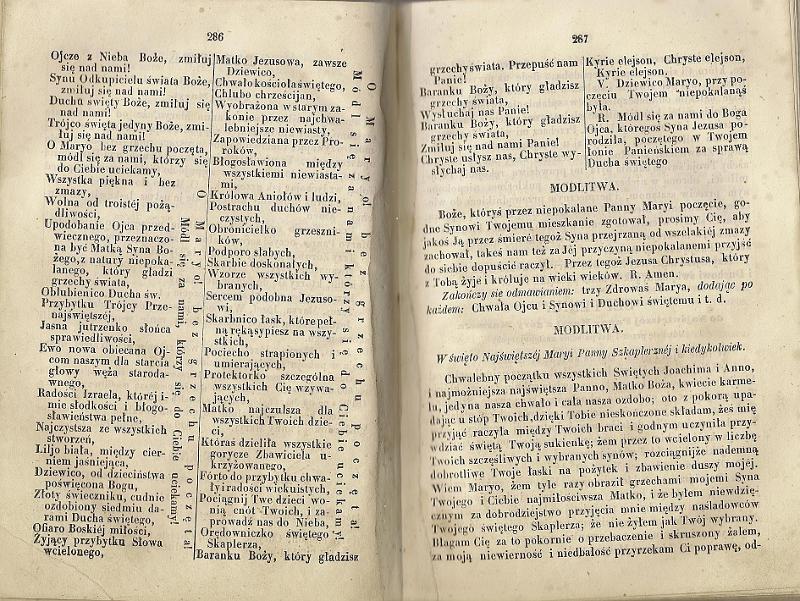 286
Ojcze z Nieba Boże, zmiłuj
się nad nami!
Synu Odkupicielu świata Boże,
zmiłuj się nad nami!
Duchu święty Boże, zmiłuj się
nad nami!
Trójco święta jedyny Boże, zmi-
łuj się nad nami!
O Maryo bez grzechu poczęta,
módl się za nami, którzy się
do Ciebie uciekamy,
Wszystka piękna i bez
zmazy,
Wolna od troistéj pożą-
dliwości,
Upodobanie Ojca przed-
wiecznego, przeznaczo-
na być Matką Syna Bo-
żego, z natury niepoka-
lanego, który gładzi
grzechy świata,
Oblubienico Ducha św.
Przybytku Trójcy Prze-
najświętszéj,
Jasna jutrzenko słońca
sprawiedliwości,
Ewo nowa obiecana Oj-
com naszym dla starcia
głowy węża staroda-
wnego,
Radości Izraela, któréj i-
mie słodkości i błogo-
sławieństwa pełne,
Najczystsza ze wszystkich
stworzeń,
Liljo biała, między cier-
niem jaśniejąca,
Dziewico, od dzieciństwa
poświęcona Bogu,
Złoty świeczniku, cudnie
ozdobiony siedmiu da-
rami Ducha świętego,
Ofiaro Boskiéj miłości,
Żyjący przybytku Słowa
wcielonego,
O Maryo! bez grzechu poczęta!
Módl się za nami, którzy się do Ciebie uciekamy!
Matko Jezusowa, zawsze
Dziewico,
Chwało kościoła świętego,
Chlubo chrześcijan,
Wyobrażona w starym za-
konie przez najchwa-
lebniejsze niewiasty,
Zapowiedziana przez Pro-
roków,
Błogosławiona między
wszystkiemi niewiasta-
mi,
Królowa Aniołów i ludzi,
Postrachu duchów nie-
czystych,
Obronicielko grzeszni-
ków,
Podporo słabych,
Skarbie doskonałych,
Wzorze wszystkich wy-
branych,
Sercem podobna Jezuso-
wi,
Skarbnico łask, które peł-
ną ręką sypiesz na wszy-
stkich,
Pociecho strapionych i
umierających,
Protektorko szczególna
wszystkich Cię wzywa-
jących,
Matko najczulsza dla
wszystkich Twoich dzie-
ci,
Któraś dzieliła wszystkie
gorycze Zbawiciela u-
krzyżowanego,
Fórto do przybytku chwa-
ły i radości wiekuistych,
Pociągnij Twe dzieci wo-
nią cnót Twoich, i za-
prowadź nas do Nieba,
Orędowniczko świętego
Skaplerza,
O Maryo! bez grzechu poczęta!
Módl się za nami którzy się do Ciebie uciekamy!
Baranku Boży, który gładzisz
287
grzechy świata. Przepuść nam
Panie!
Baranku Boży, który gładzisz
grzechy świata,
Wysłuchaj nas Panie!
Baranku Boży, który gładzisz
grzechy świata,
Zmiłuj się nad nami Panie!
Chryste usłysz nas, Chryste wy-
słychaj nas.
Kyrie elejson, Chryste elejson,
Kyrie elejson.
V. Dziewico Maryo, przy po-
częciu Twojem niepokalanaś
była.
R. Módl się za nami do Boga
Ojca, któregoś Syna Jezusa po-
rodziła, poczętego w Twojem
łonie Panieńskiem za sprawą
Ducha świętego
MODLITWA.
Boże, któryś przez niepokalane Panny Maryi poczęcie, go-
dne Synowi Twojemu mieszkanie zgotował, prosimy Cię, aby
jakoś Ją przez śmierć tegoż Syna przejrzaną od wszelakiéj zmazy
zachował, takeś nam też za Jéj przyczyną niepokalanemi przyjść
do siebie dopuścić raczył. Przez tegoż Jezusa Chrystusa, który
z Tobą żyje i króluje na wieki wieków. R. Amen.
Zakończy się odmawianiem: trzy Zdrowaś Marya, dodając po
każdem: Chwała Ojcu i Synowi i Duchowi świętemu i t. d.
MODLITWA.
W święto Najświętszéj Maryi Panny Szkaplerznéj i kiedykolwiek.
Chwalebny początku wszystkich Świętych Joachima i Anno,
i najmożniejsza najświętsza Panno, Matko Boża, kwiecie karme-
lu, jedyna nasza chwało i cała nasza ozdobo; oto z pokorą upa-
dając u stóp Twoich, dzięki Tobie nieskończone składam, żeś mię
przyjąć raczyła między Twoich braci i godnym uczyniła przy-
wdziać świętą Twoją sukienkę; żem przez to wcielony w liczbę
Twoich szczęśliwych i wybranych synów; rozciągnijże nademną
dobrotliwe Twoje łaski na pożytek i zbawienie duszy mojéj.
Wiem Maryo, żem tyle razy obraził grzechami mojemi Syna
Twojego i Ciebie najmiłościwsza Matko, i że byłem niewdzię-
cznym za dobrodziejstwo przyjęcia mnie między naśladowców
Twojego świętego Skaplerza; że nie żyłem jak Twój wybrany.
Błagam Cię za to pokornie o przebaczenie i skruszony żalem,
za moją niewierność i niedbałość przyrzekam Ci poprawę, od-